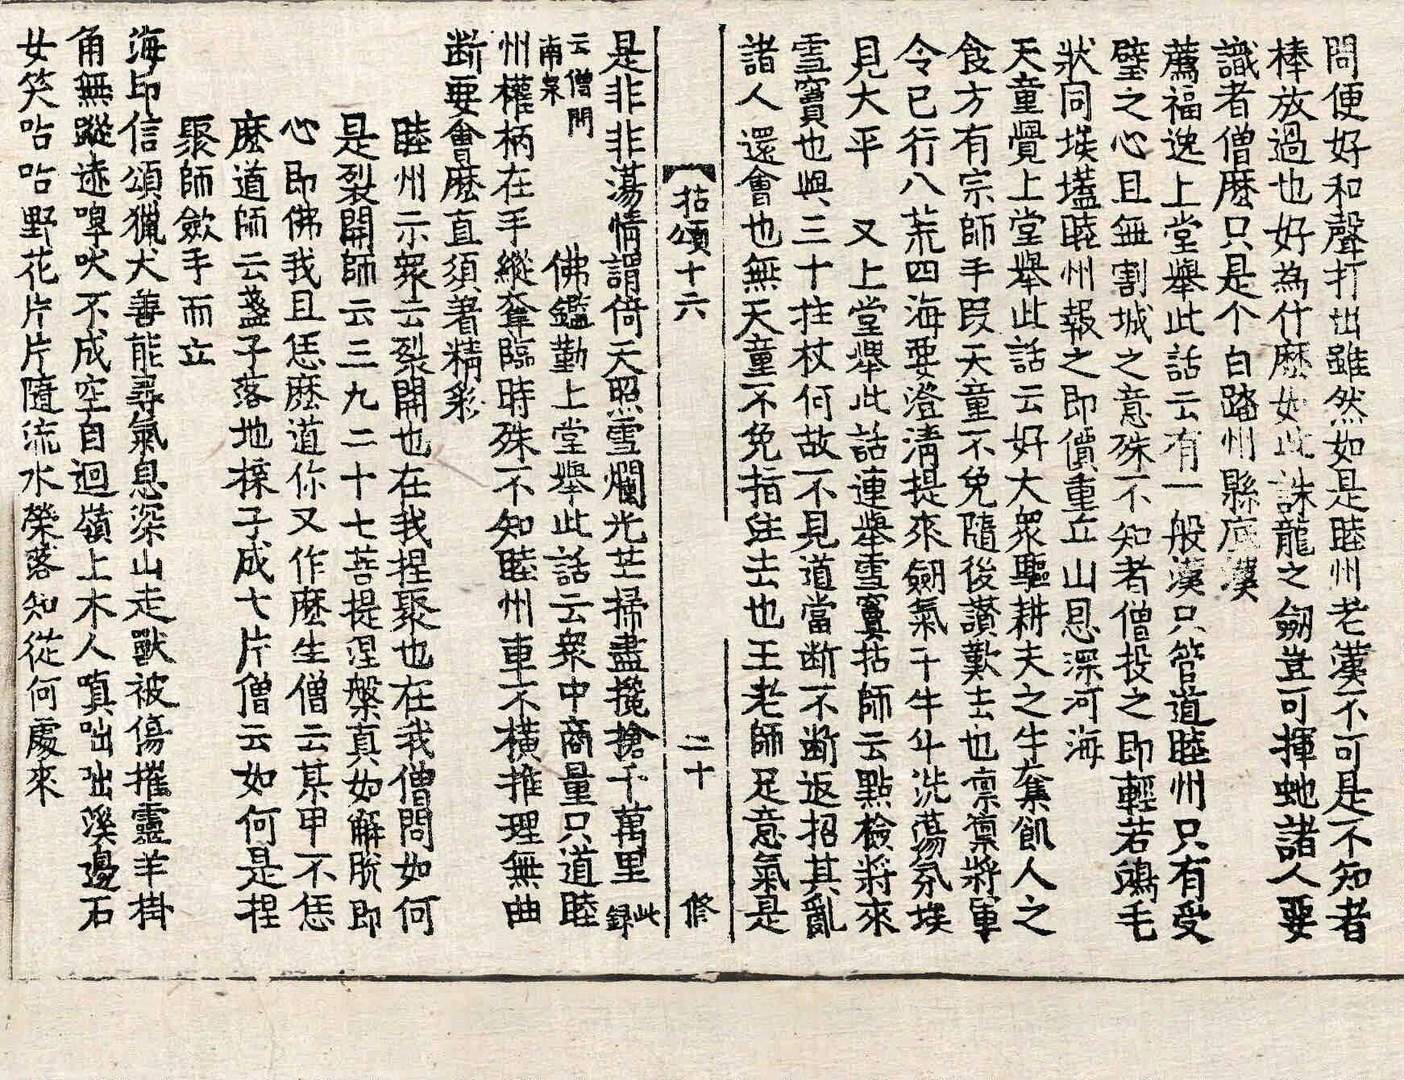 問便好和聲打出雖然如是睦州老漢不可是不知者
棒放過也好為什麽如此誅龍之劒豈可揮虵諸人要
識者僧麽只是个白踏州縣底漢
薦福逸上堂舉此話云有一般漢只管道睦州只有受
璧之心且無割城之意殊不知者僧投之即輕若鴻毛
狀同埃壒睦州報之即價重丘山恩深河海
天童覺上堂舉此話云好大衆驅耕夫之牛奪飢人之
食方有宗師手段天童不免隨後讃歎去也凛凛將軍
令已行八荒四海要澄淸提來劒氣干牛斗洗蕩氛埃
見大平 又上堂舉此話連舉雪竇拈師云點檢將來
雪竇也與三十拄杖何故不見道當断不断返招其亂
諸人還會也無天童不免指注去也王老師足意氣是
拈頌十六 二十 修
是非非蕩情謂倚天照雪爛光芒掃盡攙搶千萬里此録
云僧問南泉 佛鑑勤上堂舉此話云衆中商量只道睦
州權柄在手縱奪臨時殊不知睦州車不橫推理無曲
断要會麽直須著精彩
睦州示衆云裂開也在我捏聚也在我僧問如何
是裂開師云三九二十七菩提涅槃真如解脫即
心即佛我且恁麽道你又作麽生僧云某甲不恁
麽道師云盞子落地楪子成七片僧云如何是捏
聚師斂手而立
海印信頌獵犬善能尋氣息深山走獸被傷摧靈羊掛
角無蹤迹嘷吠不成空自迴嶺上木人嗔咄咄溪邊石
女笑咍咍野花片片隨流水榮落知從何處來